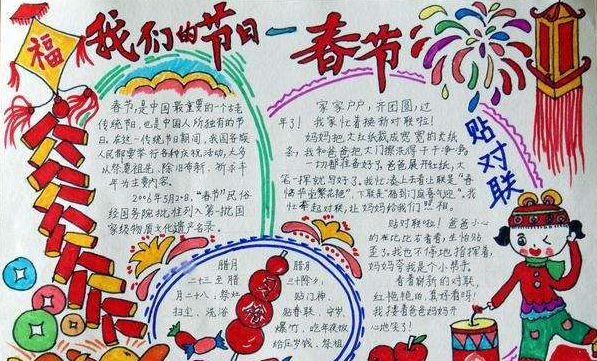 福
我们的节日—春节
春节,是中国最重要的一个古老
传统节日,也是中国人所独有的节
日。在这一传统节日期间,我国各族
人民都要举行各种庆祝活动,大多
以祭惠祖先、除旧布新、祈求丰
年为主要内容。
2006年5月20日,"春节"民俗
经国务院批准列入第一批国
家级物质文化遗产名录。
家家户户,齐团圆,过
年了!我家忙着换新对联啦!
妈妈把大红纸裁成宽宽的长纸
条,我和爸爸把大门擦洗得干干净净。
一切都准备好了。爸爸展开红纸,大
笔一挥就写好了。我忙凑上去看
下联是"福到门庭喜气迎"。我
忙着一起对联,让妈妈给我们照相。
贴对联
贴对联啦!爸爸小心
看看,生怕贴
歪了。我也不停地指挥着,
妈妈夸我是个小帮手。
看着新的对联
红艳艳的,真好看呀!
我搂着爸爸妈妈开
心地笑了!
腊月
二十三至腊
月二十八:祭灶
扫尘、洗浴
腊月
三十除夕:
贴门神、
贴春联、守岁
爆竹、吃年夜饭
给压岁钱、祭祖